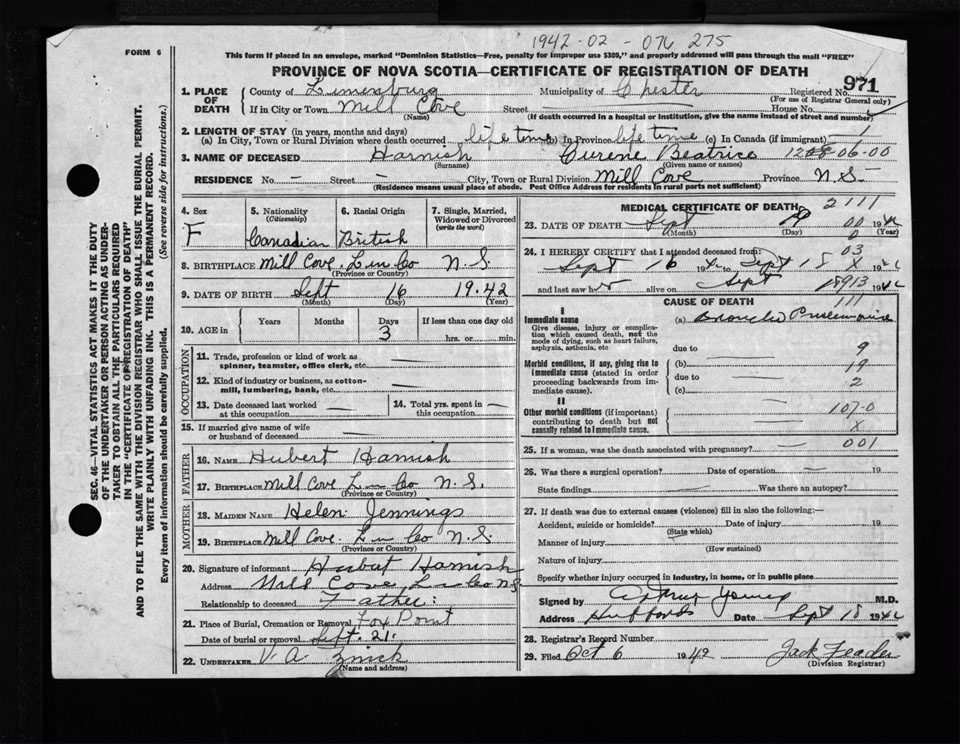 1942-02-076275
FORM 6
This form if placed in an envelope, marked "Dominion Statistics—Free, penalty for improper use $300," and properly addressed will pass through the mail "FREE"
PROVINCE OF NOVA SCOTIA—CERTIFICATE OF REGISTRATION OF DEATH
SEC. 46—VITAL STATISTICS ACT MAKES IT THE DUTY
OF THE UNDERTAKER OR PERSON ACTING AS UNDER-
TAKER TO OBTAIN ALL THE PARTICULARS REQUIRED
IN THE "CERTIFICATE OF REGISTRATION OF DEATH"
AND TO FILE THE SAME WITH THE DIVISION REGISTRAR WHO SHALL ISSUE THE BURIAL PERMIT.
WRITE PLAINLY WITH UNFADING INK. THIS IS A PERMANENT RECORD.
Every item of information should be carefully supplied. (See reverse side for instructions.)
1. PLACE OF DEATH County of Lunenburg Municipality of Chester Registered No. 971
(For use of Registrar General only)
If in City or Town Mill Cove Street House No.
(Name) (If death occurred in a hospital or institution, give the name instead of street and number)
2. LENGTH OF STAY (in years, months and days)
(a) In City, Town or Rural Division where death occurred life time (b) In Province life time (c) In Canada (if immigrant)
3. NAME OF DECEASED Harnish Eurene Beatrice 1208-06-00
(Surname) (Given name or names)
RESIDENCE No. — Street — City, Town or Rural Division Mill Cove Province N.S.
(Residence means usual place of abode. Post Office Address for residents in rural parts not sufficient)
4. Sex F
5. Nationality (Citizenship) Canadian
6. Racial Origin British
7. Single, Married, Widowed or Divorced (write the word)
8. BIRTHPLACE Mill Cove. Lun Co N.S.
(Province or Country)
9. DATE OF BIRTH Sept 16 1942
(Month) (Day) (Year)
10. AGE in Years Months Days 3 If less than one day old hrs. or min.
OCCUPATION
11. Trade, profession or kind of work as spinner, teamster, office clerk, etc.
12. Kind of industry or business, as cotton-mill, lumbering, bank, etc.
13. Date deceased last worked at this occupation
14. Total yrs. spent in this occupation
15. If married give name of wife or husband of deceased
FATHER
16. NAME Hubert Harnish
17. BIRTHPLACE Mill Cove Lun Co N.S.
(Province or Country)
MOTHER
18. MAIDEN NAME Helen Jennings
19. BIRTHPLACE Mill Cove. Lun Co N.S.
(Province or Country)
20. Signature of informant Hubert Harnish
Address Mill Cove Lun Co NS
Relationship to deceased Father:
21. Place of Burial, Cremation or Removal Fox Point
Date of burial or removal Sept. 21.
22. UNDERTAKER V. A. Zinck
(Name and address)
MEDICAL CERTIFICATE OF DEATH 2111
23. DATE OF DEATH Sept 00 194
(Month) (Day) (Year)
24. I HEREBY CERTIFY that I attended deceased from: 03
Sept 16 194 to Sept 18 X 194
and last saw her alive on Sept 194
CAUSE OF DEATH
I 111
Immediate cause (a) Broncho Pneumonia
Give disease, injury or complication which caused death, not the mode of dying, such as heart failure, asphyxia, asthenia, etc.
due to 9
Morbid conditions, if any, giving rise to immediate cause (stated in order proceeding backwards from immediate cause). (b) 19
due to 2
(c)
II
Other morbid conditions (if important) contributing to death but not causally related to immediate cause. 107-0
X
25. If a woman, was the death associated with pregnancy? — 001
26. Was there a surgical operation? — Date of operation — 19
State findings — Was there an autopsy?
27. If death was due to external causes (violence) fill in also the following:—
Accident, suicide or homicide? Date of injury 19
(State which)
Manner of injury
(How sustained)
Nature of injury
Specify whether injury occurred in industry, in home, or in public place
Signed by Young M.D.
Address Hubbards Date Sept 18 194
28. Registrar's Record Number
29. Filed Oct 6 1942 Jack Feader
(Division Registrar)